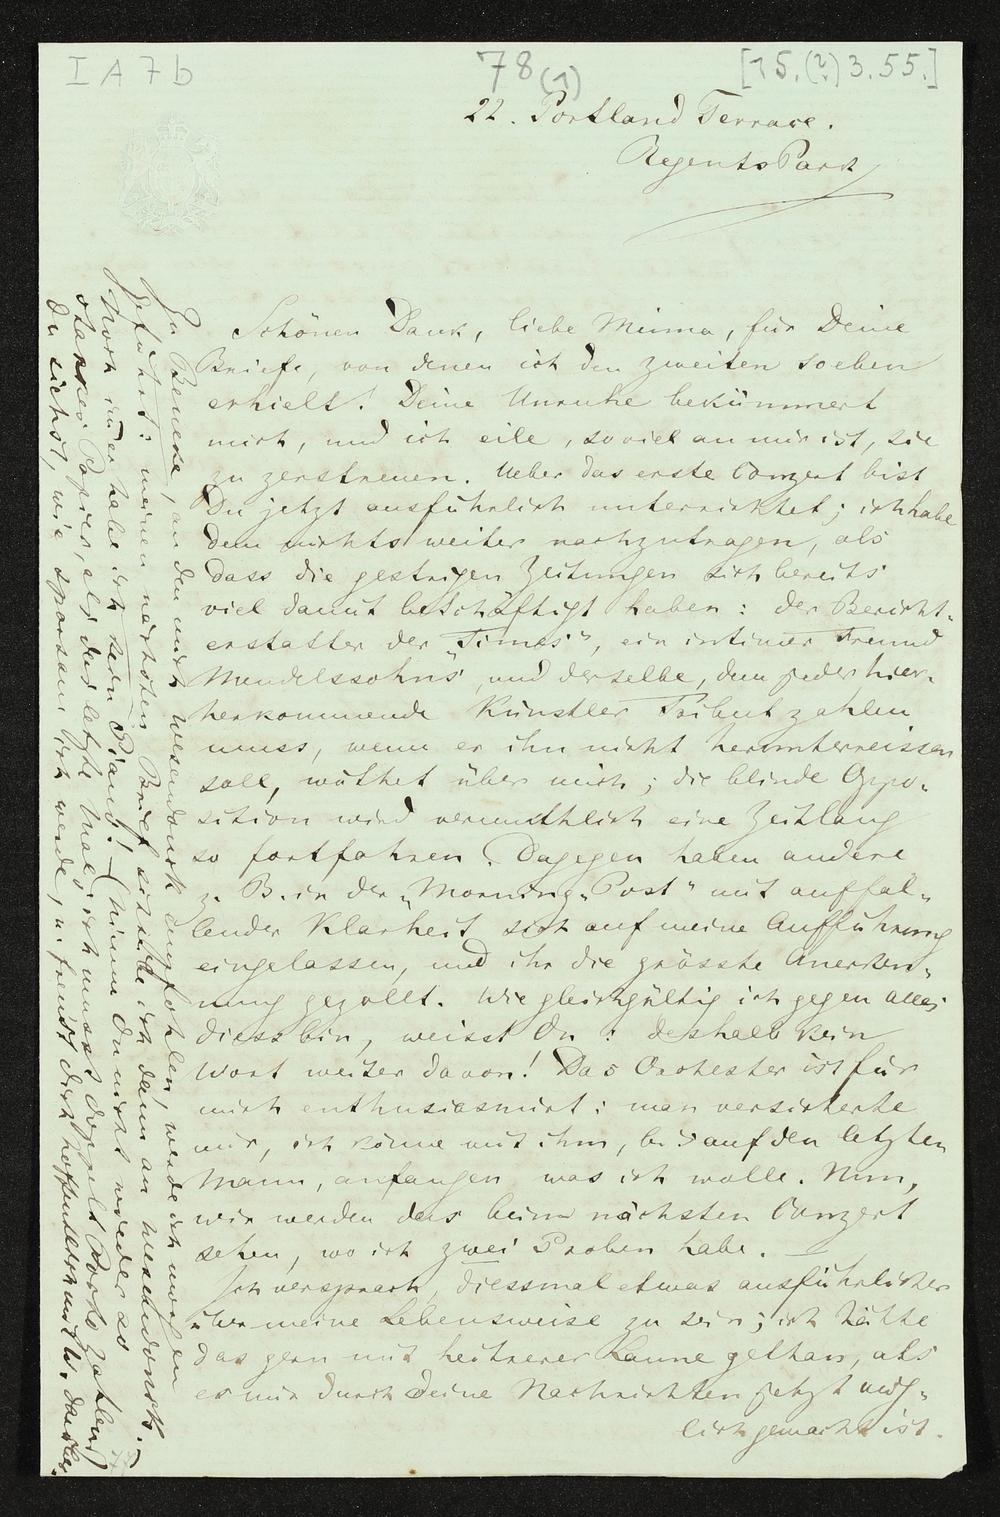 I A 7 b
78 (1)
[15.(?) 3.55.]
22. Portland Terrace.
Regents Park
Schönen Dank, liebe Minna, für Deine
Briefe, von denen ich den zweiten soeben
erhielt! Deine Unruhe bekümmert
mich, und ich eile, soviel an mir ist, sie
zu zerstreuen. Ueber das erste Conzert bist
Du jetzt ausführlich unterrichtet; ich habe
dem nichts weiter nachzutragen, als
dass die gestrigen Zeitungen sich bereits
viel damit beschäftigt haben: der Bericht-
erstatter der „Times", ein intimer Freund
Mendelssohns, und derselbe, dem jeder hier-
herkommende Künstler Tribut zahlen
muss, wenn er ihn nicht herunterreissen
soll, wüthet über mich; die blinde Oppo-
sition wird vermuthlich eine Zeitlang
so fortfahren. Dagegen haben andere
z. B. in der „Morning-Post" mit auffal-
lender Klarheit sich auf meine Aufführung
eingelassen, und ihr die grösste Anerken-
nung gezollt. Wie gleichgültig ich gegen alles
diess bin, weisst Du: deshalb kein
Wort weiter davon! Das Orchester ist für
mich enthusiasmirt: man versicherte
mir, ich könne mit ihm, bis auf den letzten
Mann, anfangen was ich wolle. Nun,
wir werden das beim nächsten Conzert
sehen, wo ich zwei Proben habe. —
Ich versprach, diessmal etwas ausführlicher
über meine Lebensweise zu sein; ich hätte
das gern mit heitrerer Laune gethan, als
es mir durch Deine Nachrichten jetzt mög-
lich gemacht ist.
Zu Benecke, an den mich Wesendonck empfohlen, werde ich morgen
geführt: meinen nächsten Brief schreibe ich dann an Wesendonck. —
Noch immer habe ich kein Piano! — (Nimm Du nicht wieder so
starkes Papier, als das letzte Mal; ich musst doppelt Porto zahlen!
Du siehst, wie sparsam ich werde, u. freust Dich hoffentlich mit mir darüber.